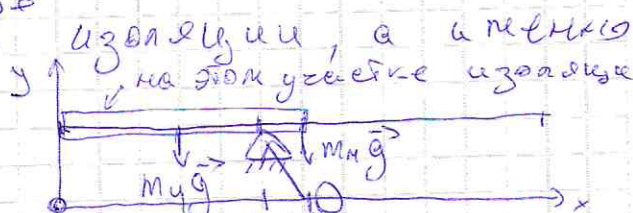 изоляции, а именно
y на этом участке изоляци
mиg⃗ mнg⃗
x